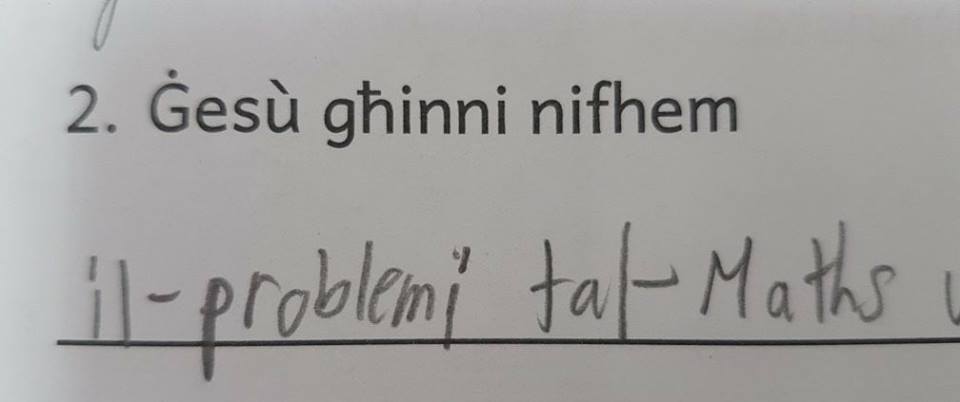 2. Ġesù għinni nifhem
il-problemi tal-Maths